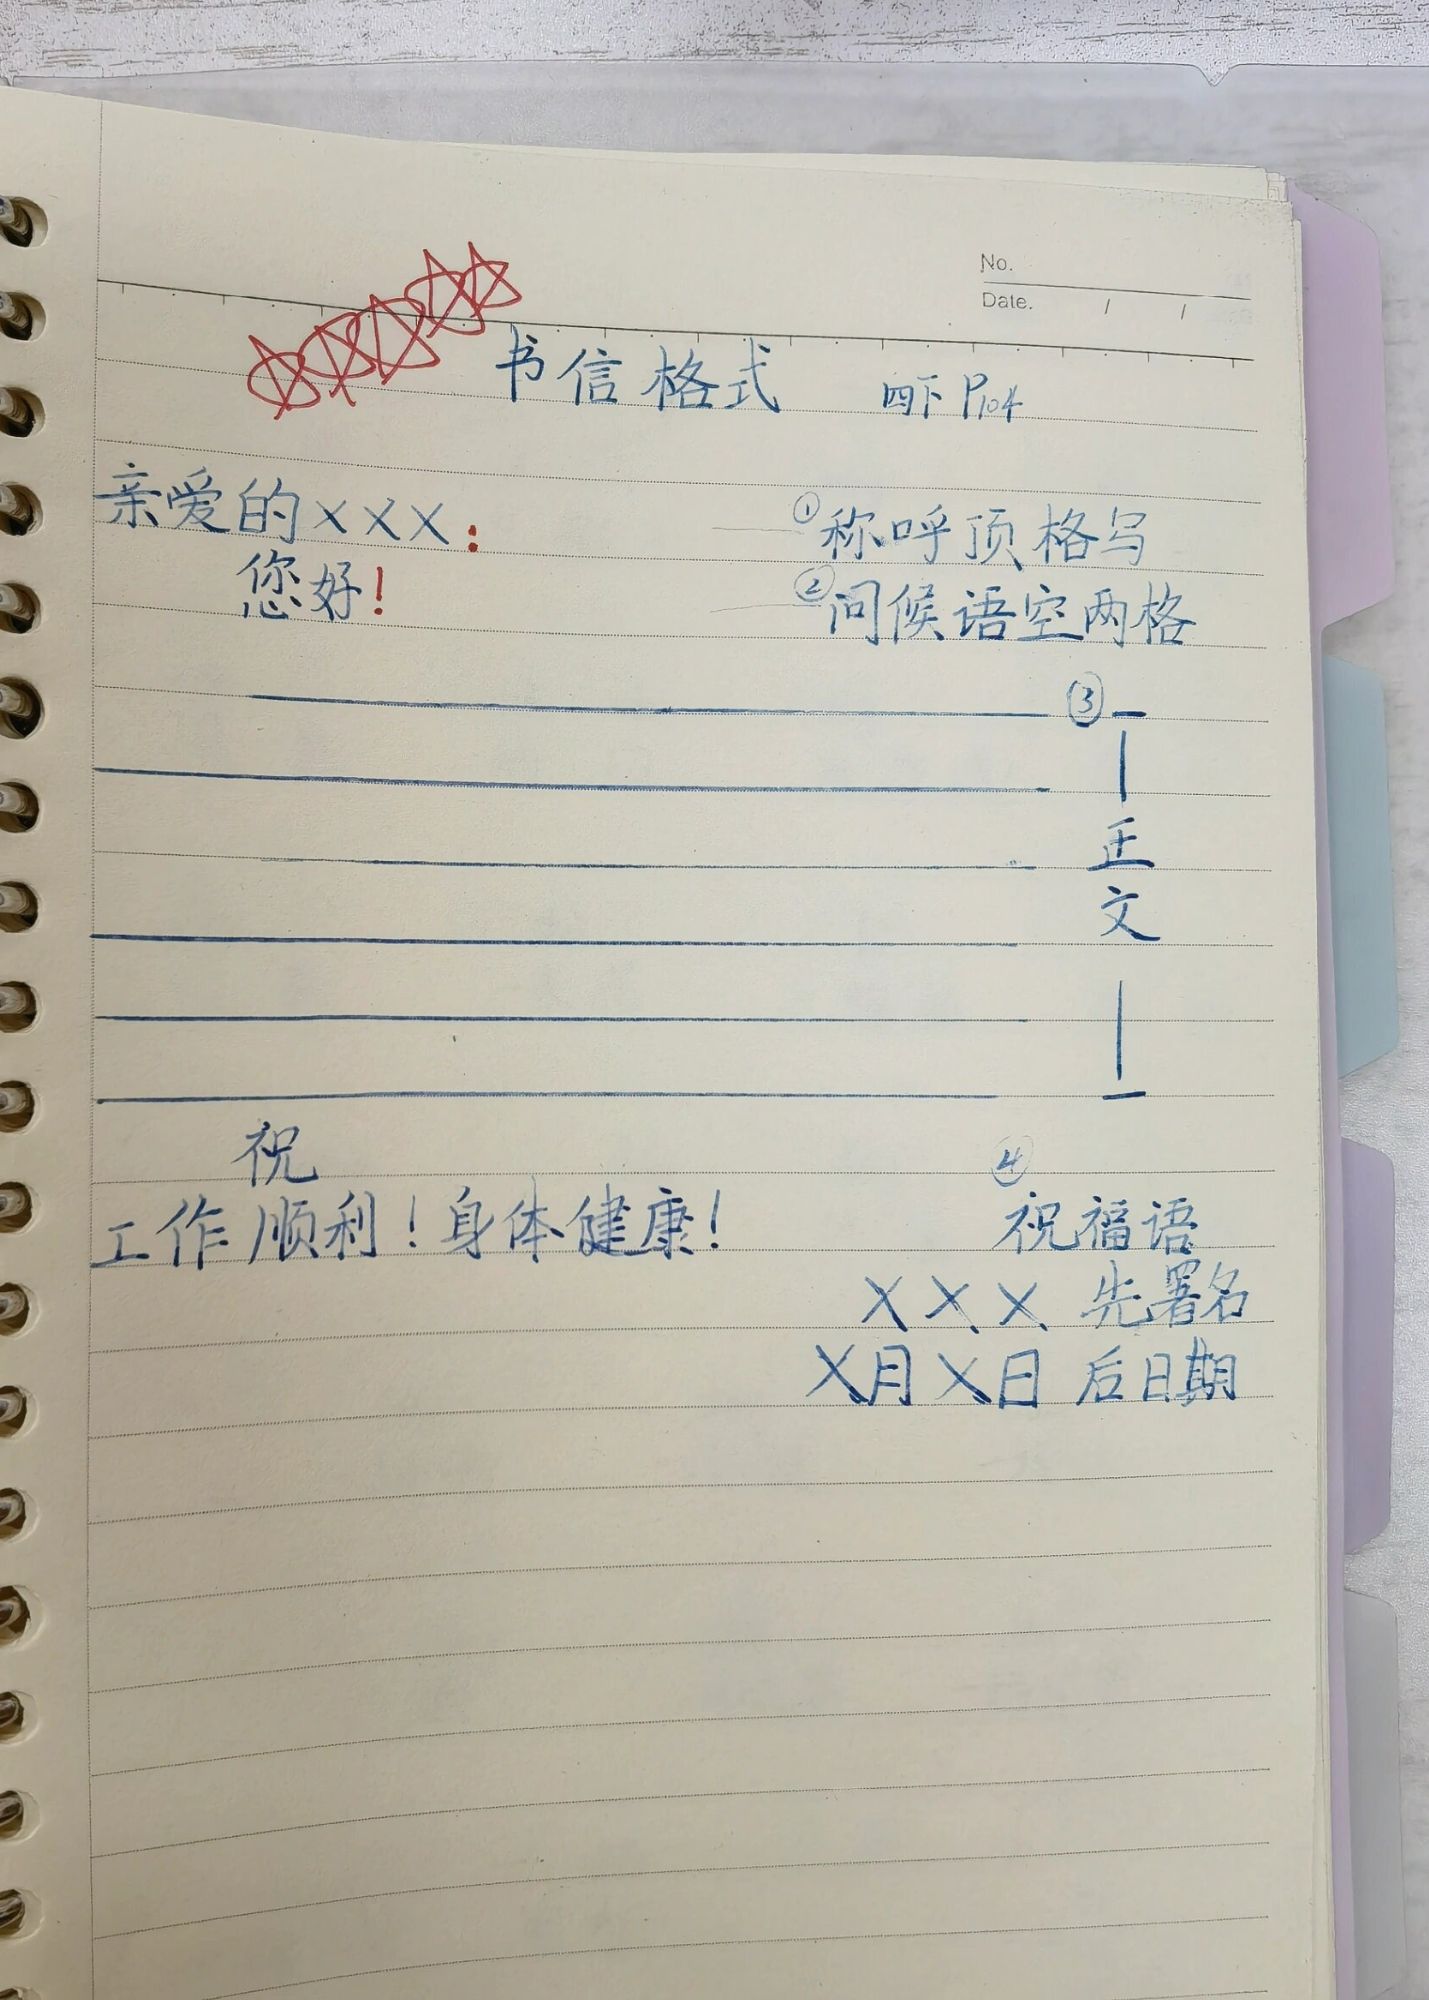 No.
Date. / /
书信格式 四下 P104
亲爱的×××： ①称呼顶格写
您好！ ②问候语空两格
③
正
文
祝 ④
工作顺利！身体健康！ 祝福语
××× 先署名
×月×日 后日期